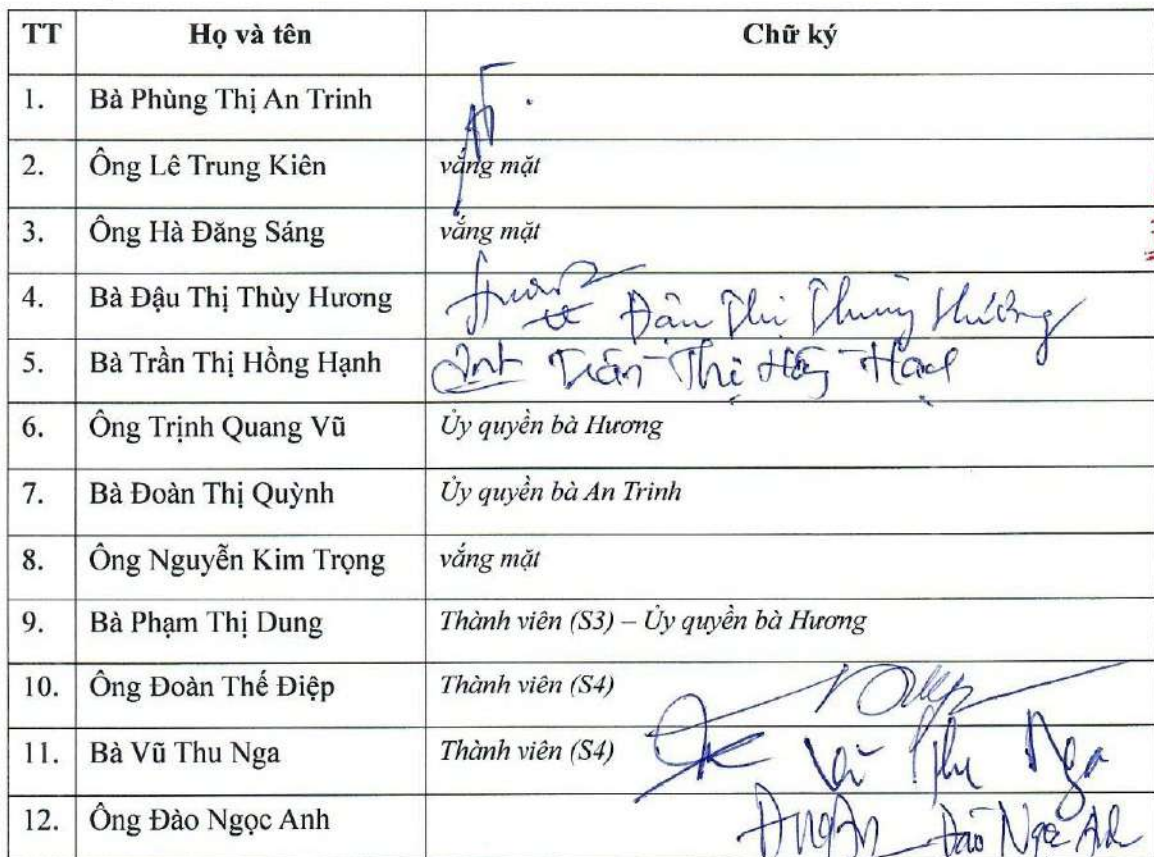 TT Họ và tên Chữ ký
1. Bà Phùng Thị An Trinh
2. Ông Lê Trung Kiên vắng mặt
3. Ông Hà Đăng Sáng vắng mặt
4. Bà Đậu Thị Thùy Hương Đậu Thị Thùy Hương
5. Bà Trần Thị Hồng Hạnh Trần Thị Hồng Hạnh
6. Ông Trịnh Quang Vũ Ủy quyền bà Hương
7. Bà Đoàn Thị Quỳnh Ủy quyền bà An Trinh
8. Ông Nguyễn Kim Trọng vắng mặt
9. Bà Phạm Thị Dung Thành viên (S3) – Ủy quyền bà Hương
10. Ông Đoàn Thế Điệp Thành viên (S4)
11. Bà Vũ Thu Nga Thành viên (S4) Vũ Thu Nga
12. Ông Đào Ngọc Anh Đào Ngọc Anh